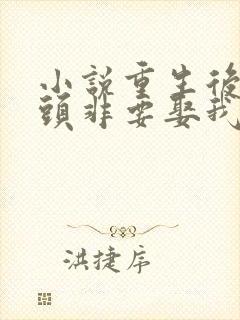 小說重生後
頭非要娶我
洪捷序